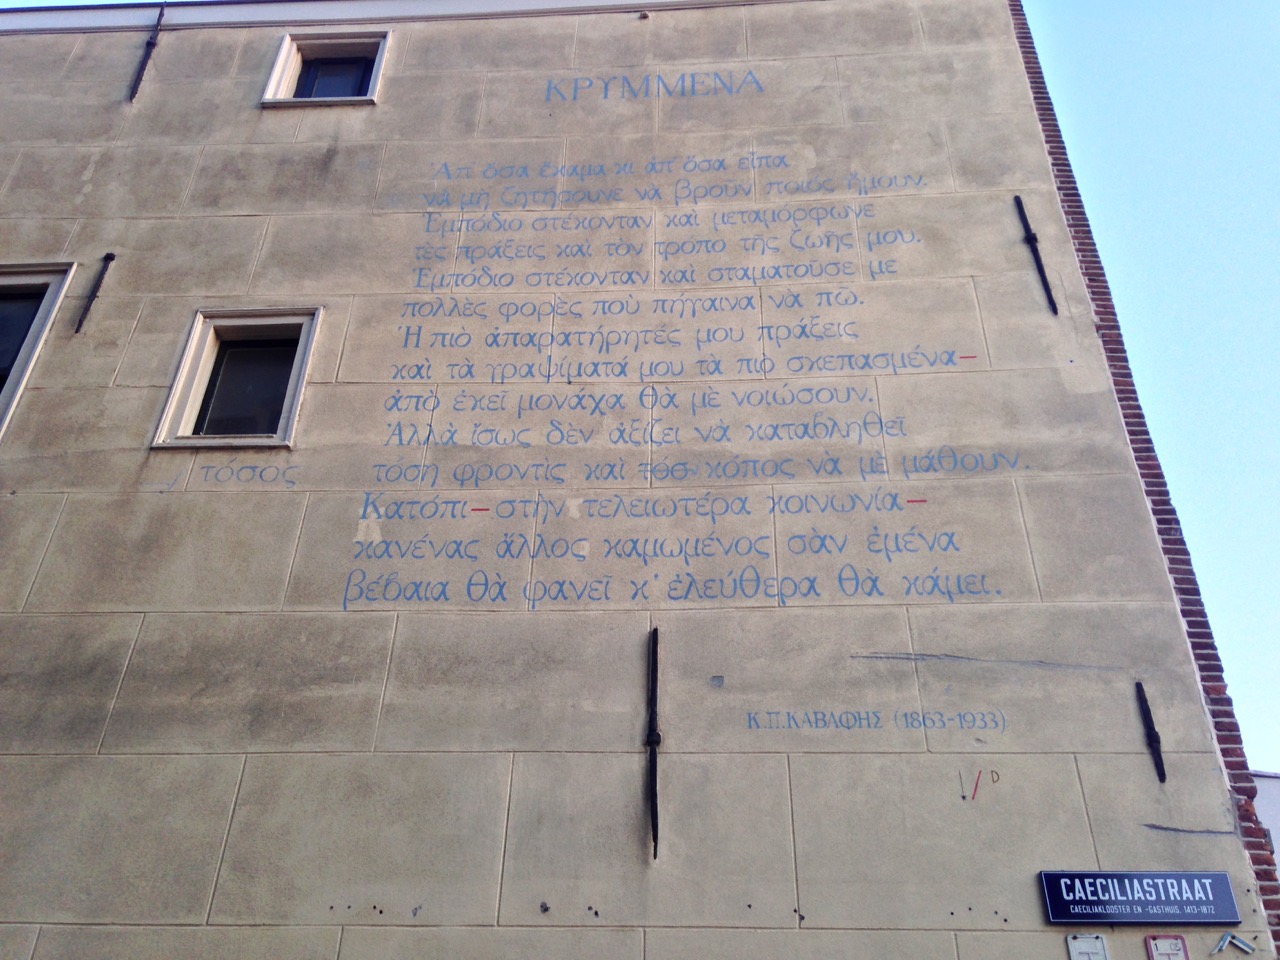 ΚΡΥΜΜΕΝΑ
Ἀπ ὅσα ἔκαμα κι ἀπ ὅσα εἶπα
νὰ μὴ ζητήσουνε νὰ βροῦν ποιός ἤμουν.
Ἐμπόδιο στέκονταν καὶ μεταμόρφωνε
τὲς πράξεις καὶ τὸν τρόπο τῆς ζωῆς μου.
Ἐμπόδιο στέκονταν καὶ σταματοῦσε με
πολλὲς φορὲς ποὺ πήγαινα νὰ πῶ.
Ἡ πιὸ ἀπαρατήρητές μου πράξεις
καὶ τὰ γραψίματά μου τὰ πιὸ σκεπασμένα—
ἀπὸ ἐκεῖ μονάχα θὰ μὲ νοιώσουν.
Ἀλλὰ ἴσως δὲν ἀξίζει νὰ καταβληθεῖ
/ τόσος τόση φροντὶς καὶ τόσ κόπος νὰ μὲ μάθουν.
Κατόπι—στὴν τελειωτέρα κοινωνία—
κανένας ἄλλος καμωμένος σὰν ἐμένα
βέβαια θὰ φανεῖ κ' ἐλεύθερα θὰ κάμει.
Κ.Π.ΚΑΒΑΦΗΣ (1863-1933)
CAECILIASTRAAT
CAECILIAKLOOSTER EN -GASTHUIS, 1413-1872